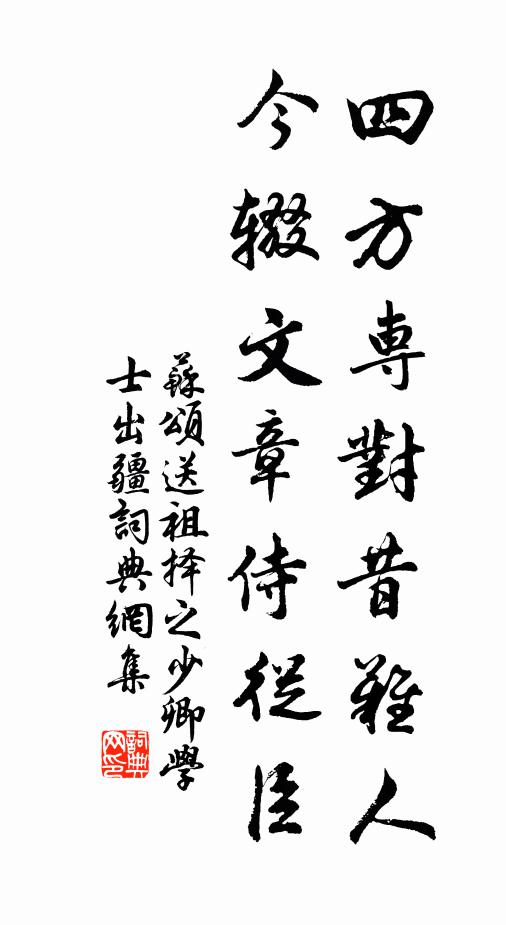 四方専對昔難人
今辍文章侍從臣
蘇頌送祖择之少卿學
士出疆詞典網集
詞典
网印